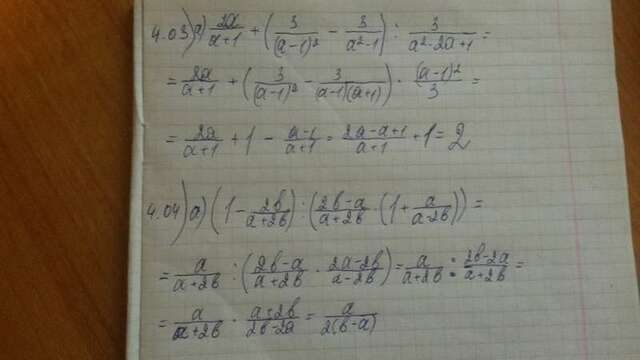 4.03) а) 2a/(a+1) + (3/(a-1)² - 3/(a²-1)) : 3/(a²-2a+1) =
= 2a/(a+1) + (3/(a-1)² - 3/((a-1)(a+1))) · (a-1)²/3 =
= 2a/(a+1) + 1 - (a-1)/(a+1) = (2a-a+1)/(a+1) + 1 = 2
4.04) а) (1 - 2b/(a+2b)) : ((2b-a)/(a+2b) · (1 + a/(a-2b))) =
= a/(a+2b) : ((2b-a)/(a+2b) · (2a-2b)/(a-2b)) = a/(a+2b) : (2b-2a)/(a+2b) =
= a/(a+2b) · (a+2b)/(2b-2a) = a/(2(b-a))